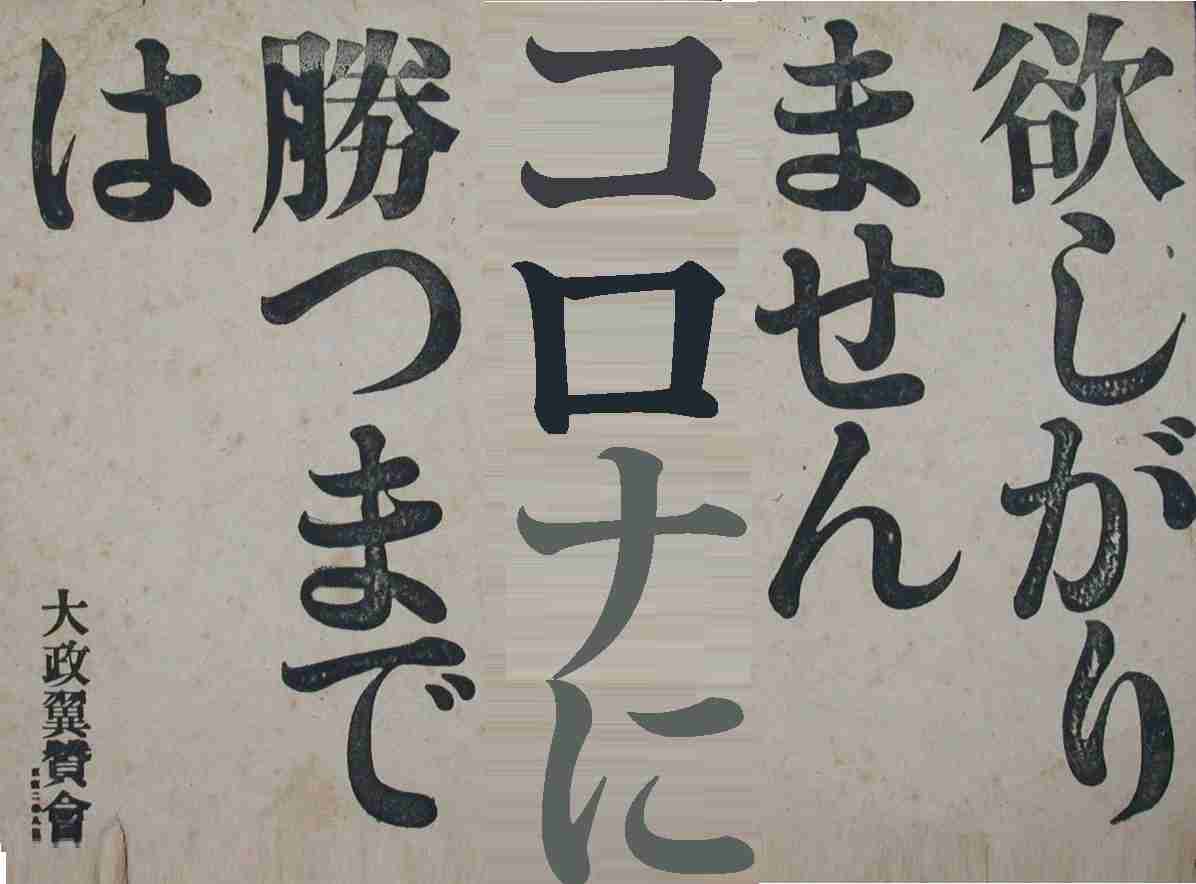 欲しがり
ません
コロナに
勝つまで
は
大政翼贊會